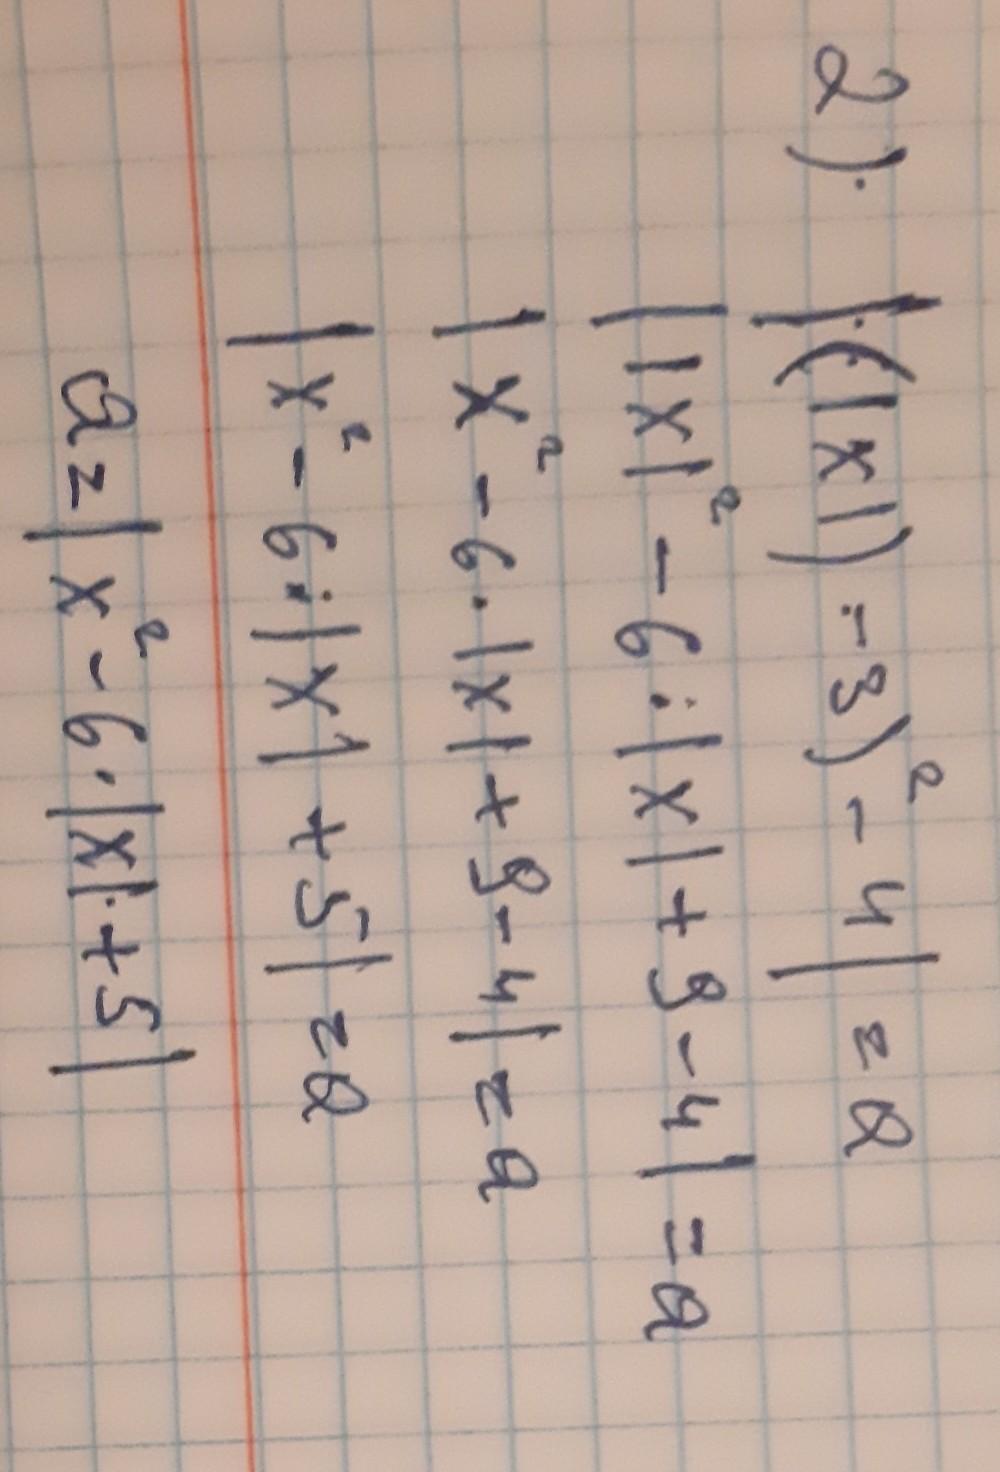 2). |(|x|)-3)² - 4| = a
||x|² - 6·|x| + 9 - 4| = a
|x² - 6·|x| + 9 - 4| = a
|x² - 6·|x| + 5| = a
a = |x² - 6·|x| + 5|